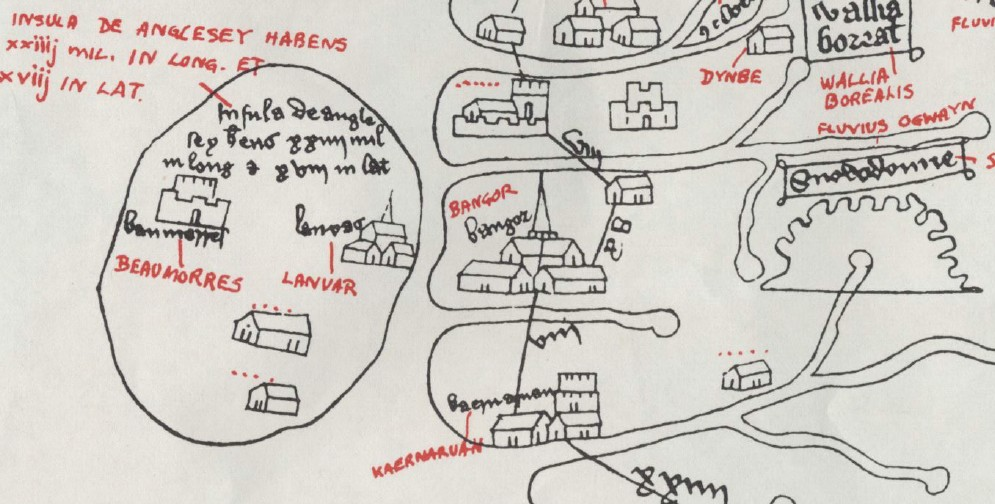 INSULA DE ANGLESEY HABENS
xxiiij MIL. IN LONG. ET
xviij IN LAT.
Insula de angle
sey hens xxiiij mil
in long & xviij in lat
beaumorres
BEAUMORRES
lanvar
LANVAR
DYNBE
Wallia
boreal
WALLIA
BOREALIS
FLUVI
FLUVIUS OGWAYN
Snowdonne
S
BANGOR
bangor
xv
vii
kaernarvan
KAERNARVAN